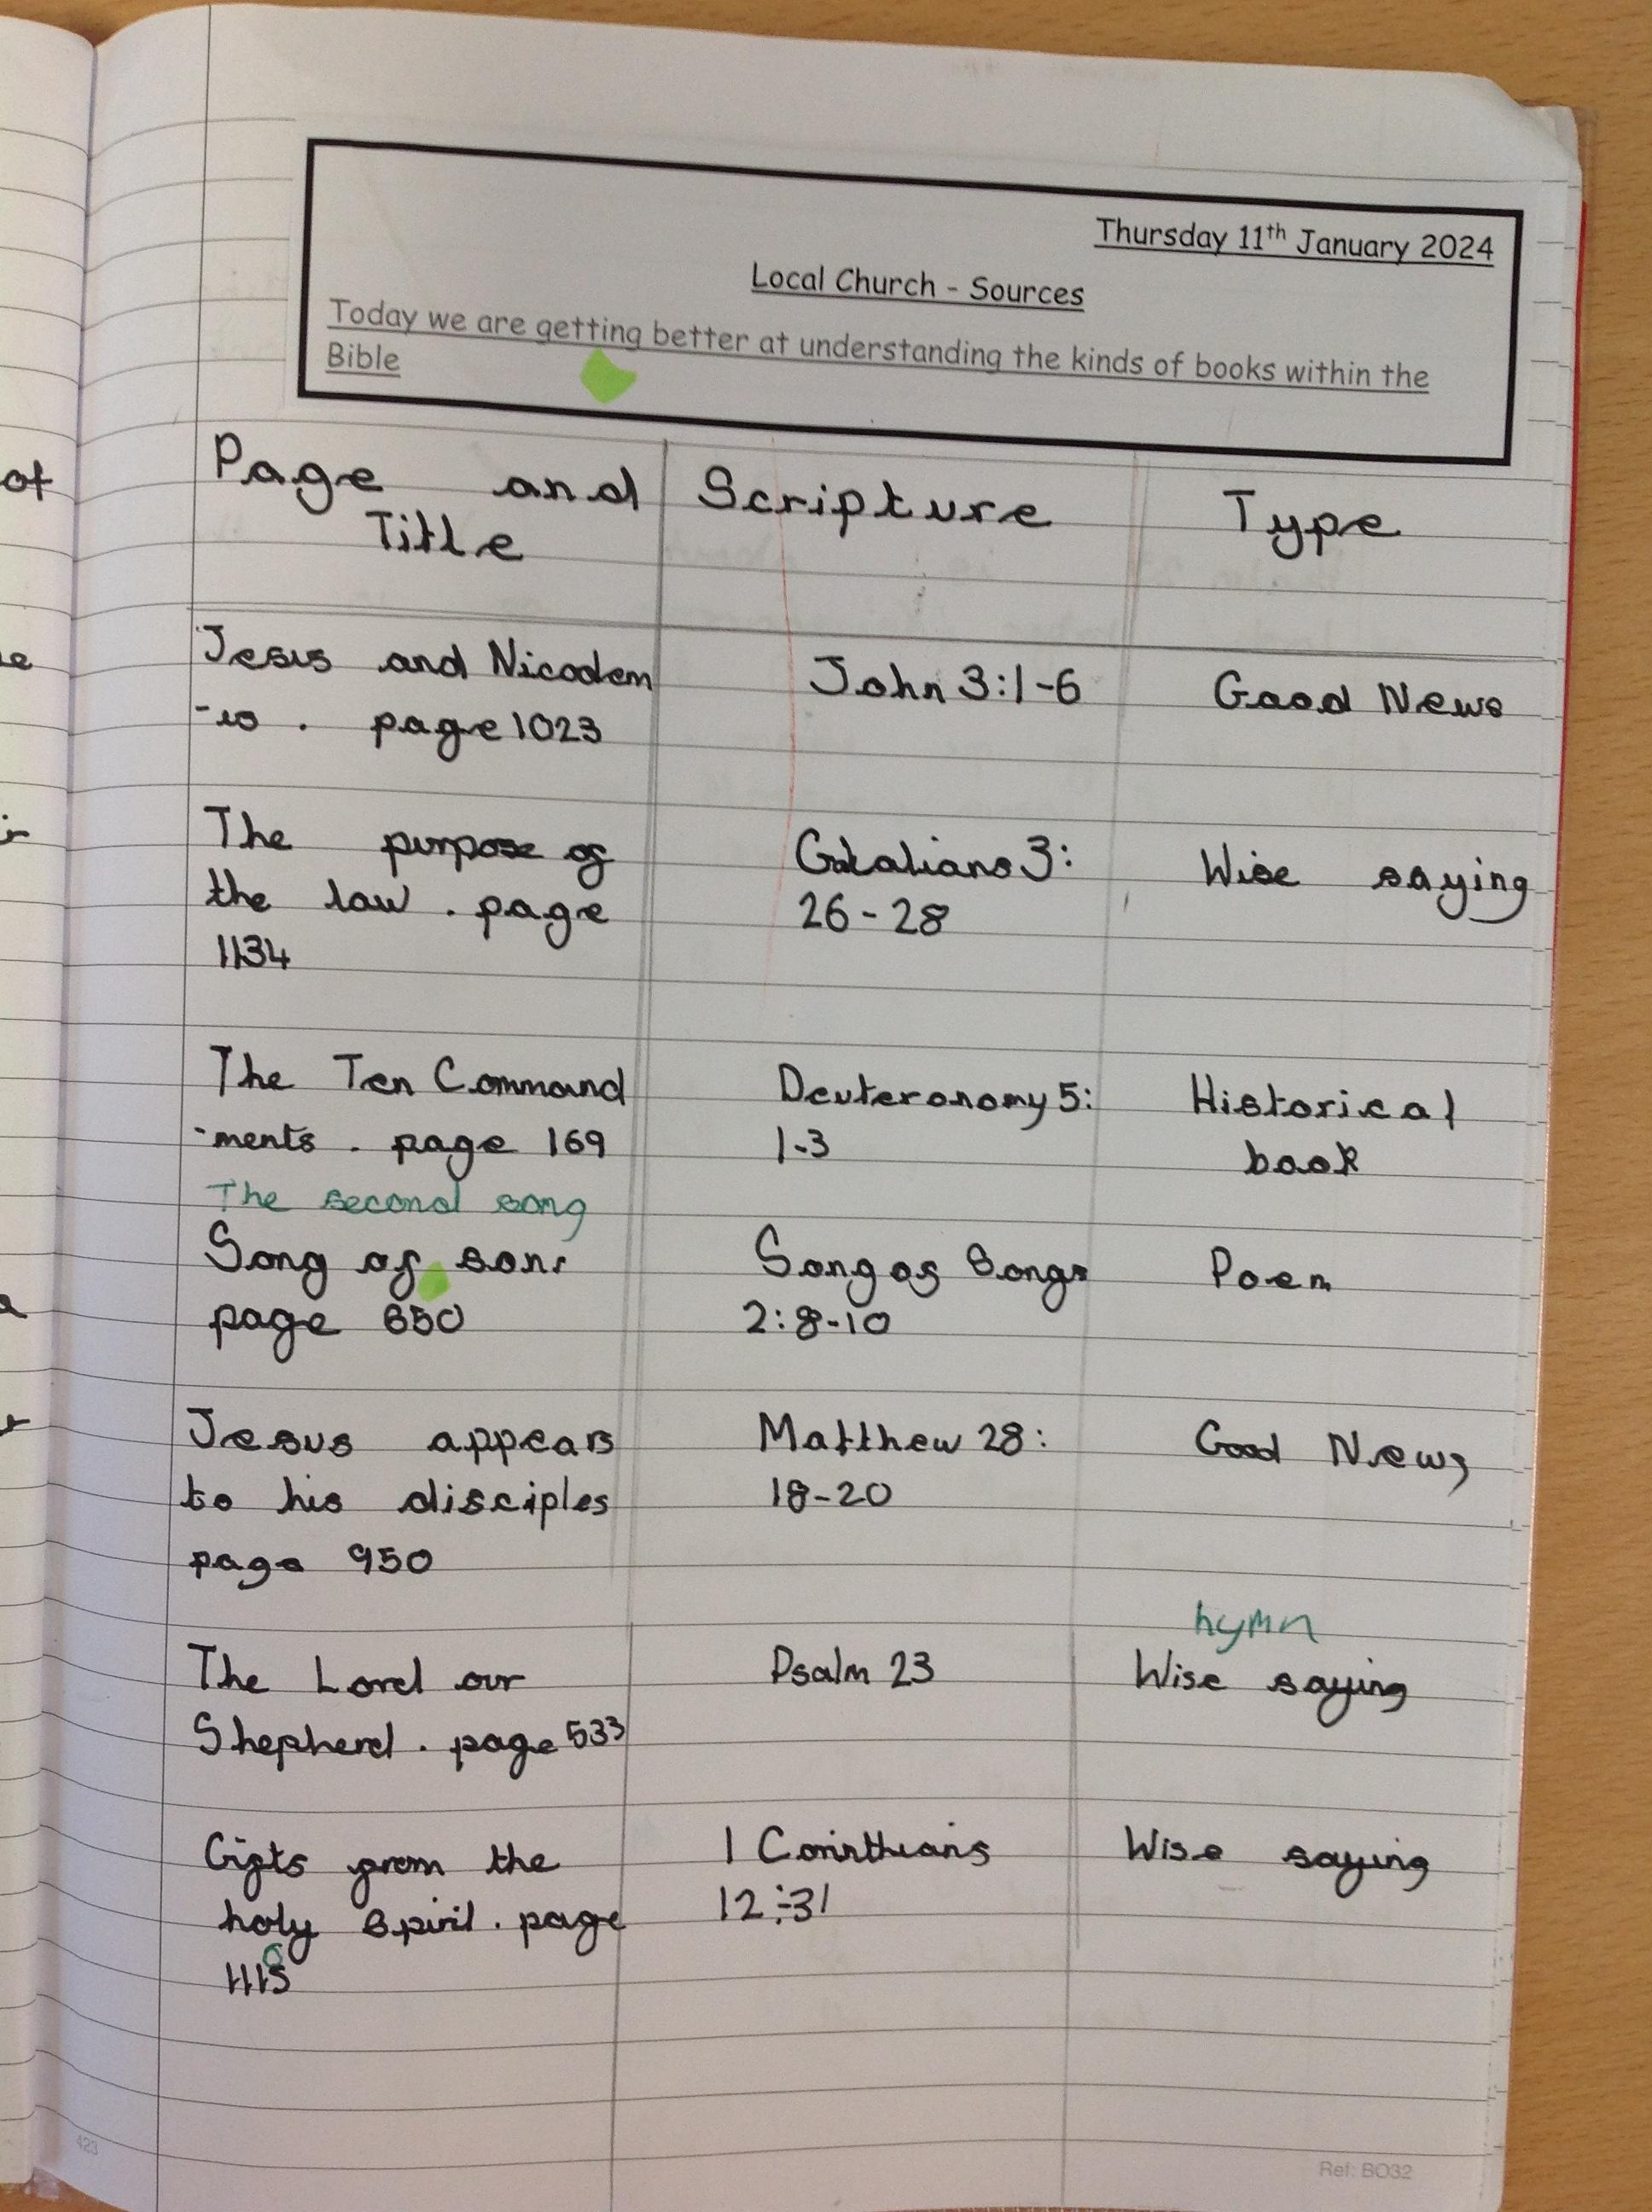 Thursday 11th January 2024
Local Church - Sources
Today we are getting better at understanding the kinds of books within the
Bible
Page and Title
Scripture
Type
Jesus and Nicodem
-us . page 1023
John 3:1-6
Good News
The purpose of
the law . page
1134
Galalians 3:
26-28
Wise saying
The Ten Command
-ments . page 169
Deuteronomy 5:
1-3
Historical
book
The second song
Song of son
page 650
Song of Songs
2:8-10
Poem
Jesus appears
to his disciples
page 950
Matthew 28:
18-20
Good News
The Lord our
Shepherd . page 533
Psalm 23
hymn
Wise saying
Gifts from the
holy Spiril . page
1 Corinthians
12:-31
Wise saying
423
Ref: BO32
of